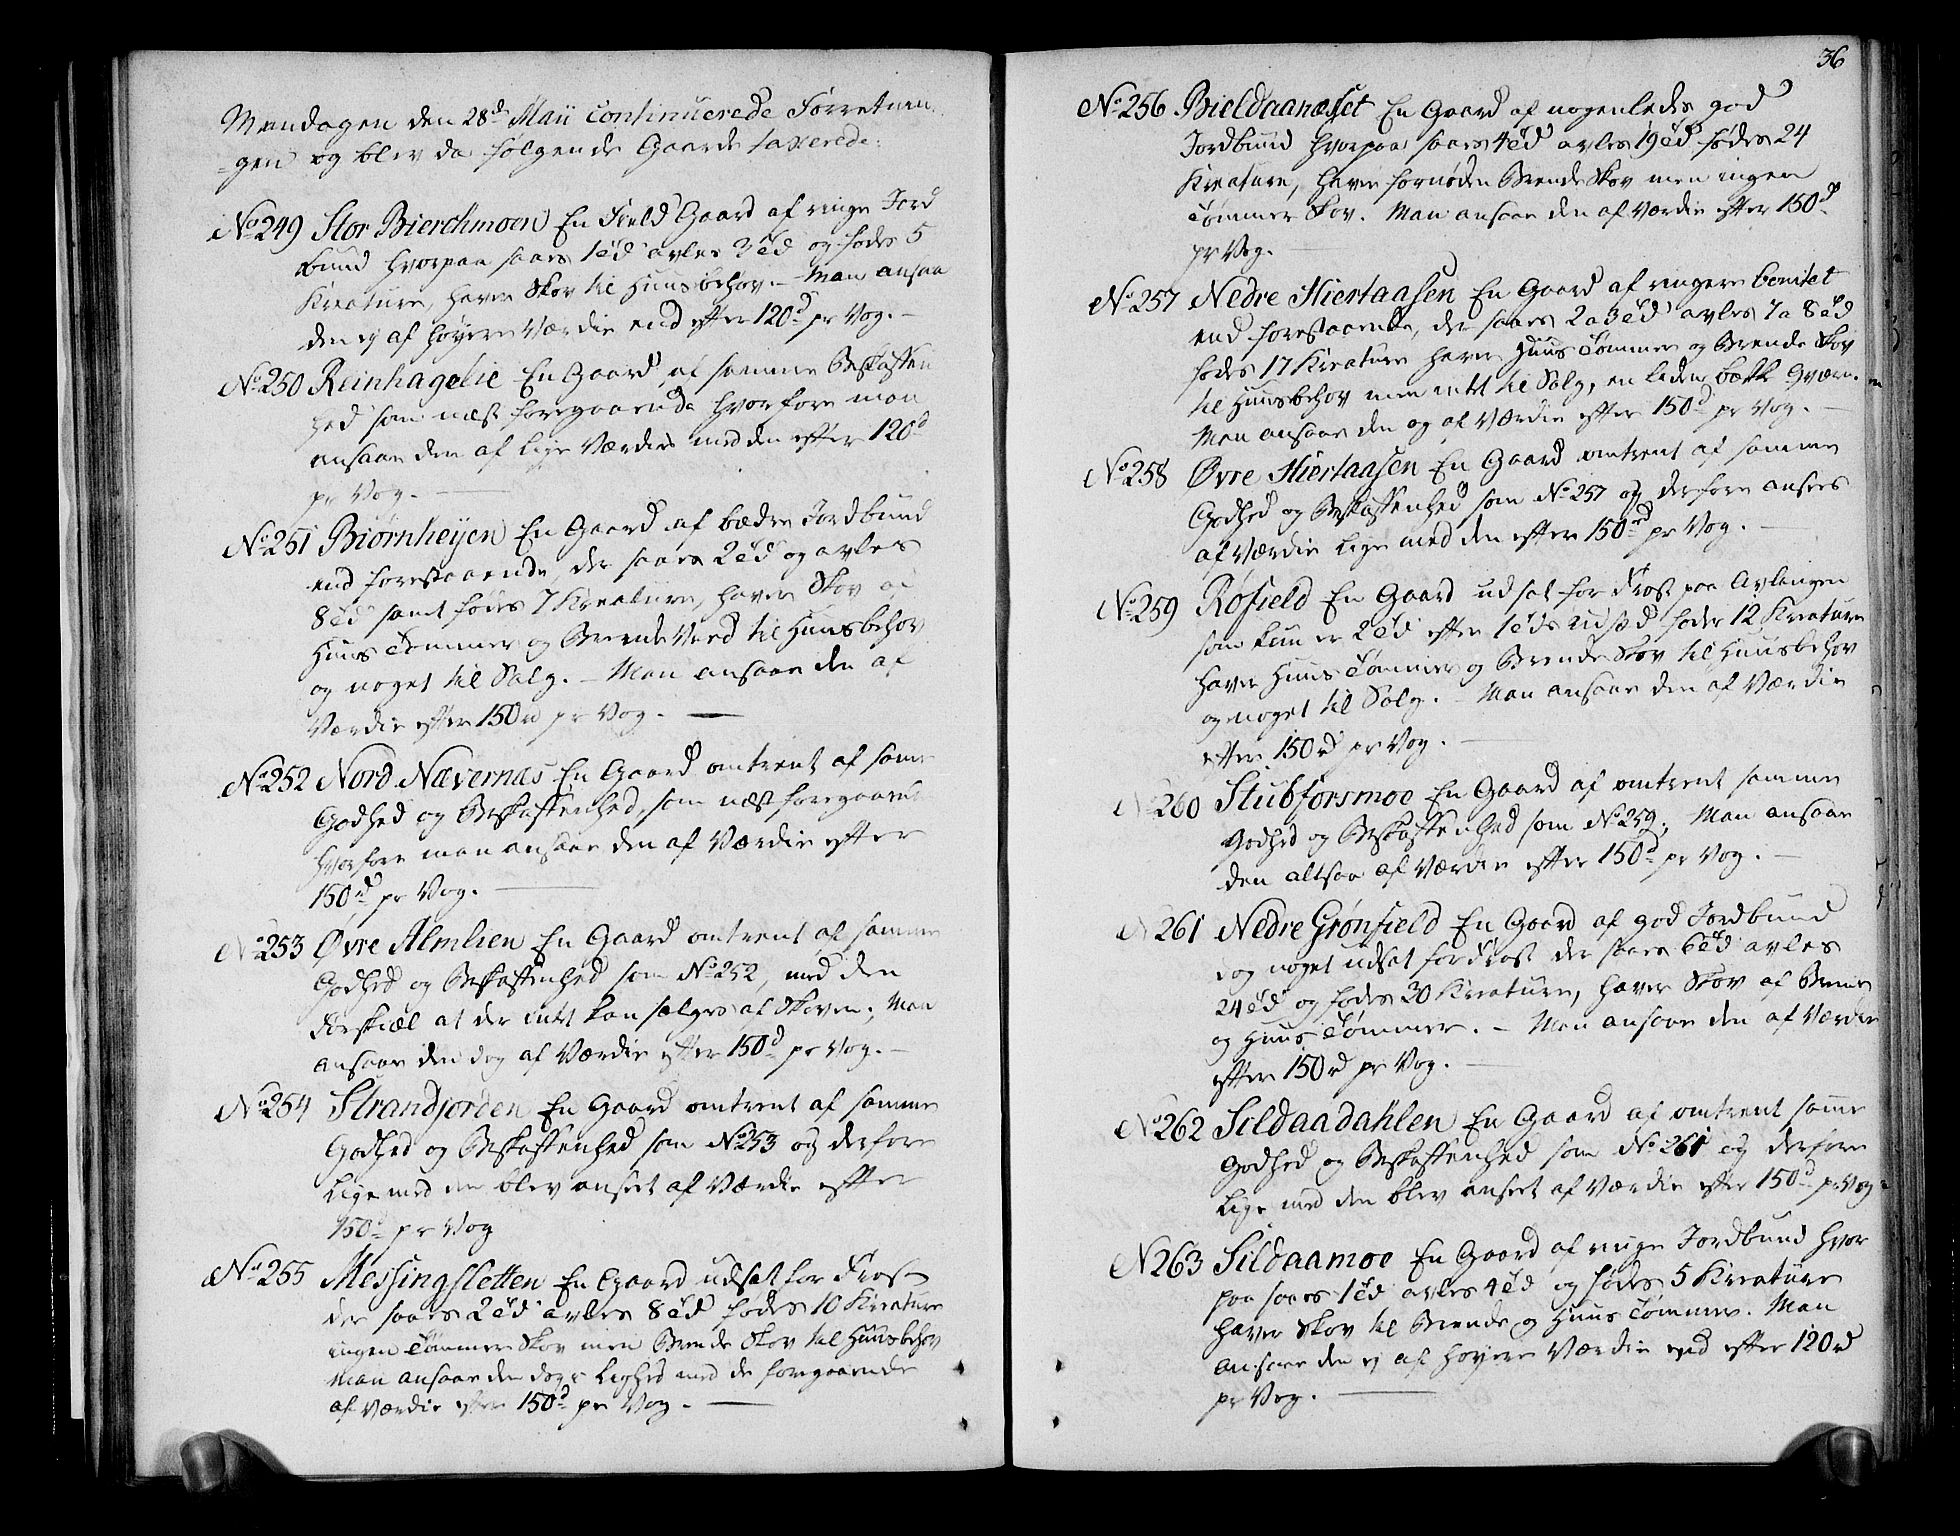 Mandagen den 28d Maii continuerede Forretnin
-gen og blev da følgende Gaarde taxerede:
No 249 Stor Bierchmoen En Field Gaard af ringe Jord
bund hvorpaa saaes 1 tde avles 2 tde og fødes 5
Kreature, haver Skov til Huusbehov. - Man ansaae
den ej af høyere Værdie end efter 120d pr Vog. -
No 250 Reinhagelie En Gaard af samme Beskaffen
hed som næst foregaaende hvorfore man
ansaae den af lige Værdie med den efter 120d
pr Vog. -
No 251 Biørnheijen En Gaard af bedre Jordbund
end forestaaende, der saaes 2 tde og avles
8 tde samt fødes 7 Kreature, haver Skov af
Huus Tømmer og Brende Veed til Huusbehov
og noget til Salg. - Man ansaae den af
Værdie efter 150 rd pr Vog. -
No 252 Nord Nævernæs En Gaard omtrent af samme
Godhed og Beskaffenhed, som næst foregaaende
hvorfore man ansaae den af Værdie efter
150 rd pr Vog. -
No 253 Øvre Almlien En Gaard omtrent af samme
Godhed og Beskaffenhed som No 252, med den
Forskiæl at der intet kan sælges af Skoven; Man
ansaae den dog af Værdie efter 150d pr Vog. -
No 254 Strandjorden En Gaard omtrent af samme
Godhed og Beskaffenhed som No 253 og derfore
lige med den blev anseet af Værdie efter
150d pr Vog
No 255 Messingsletten En Gaard udsat for Frost
der saaes 2 tde avles 8 tde fødes 10 Kreature
ingen Tømmer Skov men Brende Skov til Huusbehov
Man ansaae den dog i Lighed med de foregaaende
af Værdie efter 150d pr Vog. -
36
No 256 Bieldaanæsset En Gaard af nogenledes god
Jordbund hvorpaa saaes 4 tde avles 19 tde fødes 24
Kreature, haver fornøden Brende Skov men ingen
Tømmer Skov. Man ansaae den af Værdie efter 150d
pr Vog. -
No 257 Nedre Hiertaasen En Gaard af ringere bonitet
end forestaaende, der saaes 2 a 3 tde avles 7 a 8 tde
fødes 17 Kreature haver Huus Tømmer og Brende Skov
til Huusbehov men intet til Salg, en liden bække Qværn.
Man ansaae den og af Værdie efter 150d pr Vog. -
No 258 Øvre Hiertaasen En Gaard omtrent af samme
Godhed og Beskaffenhed som No 257 og derfore ansees
af Værdie lige med den efter 150 rd pr Vog. -
No 259 Røfield En Gaard udsat for Frost paa Avlingen
som kun er 2 tde efter 1 tdes udsæd føder 12 Kreature
haver Huus Tømmer og Brende Skov til Huusbehov
og noget til Salg. - Man ansaae den af Værdie
efter 150 rd pr Vog. -
No 260 Stubforsmoe En Gaard af omtrent samme
Godhed og Beskaffenhed som No 259; Man ansaae
den altsaa af Værdie efter 150d pr Vog. -
No 261 Nedre Grønfield En Gaard af god Jordbund
dog noget udsat for Frost der saaes 6 tde avles
24 tde og fødes 30 Kreature, haver Skov af Brende
og Huus Tømmer. - Man ansaae den af Værdie
efter 150 rd pr Vog. -
No 262 Sildaadahlen En Gaard af omtrent samme
Godhed og Beskaffenhed som No 261 og derfore
lige med den blev anseet af Værdie efter 150d pr Vog
N 263 Sildaamoe En Gaard af ringe Jordbund hvor
paa saaes 1 tde avles 4 tde og fødes 5 Kreature
haver Skov til Brende og Huus Tømmer. Man
ansaae den ej af høyere Værdie end efter 120 rd
pr Vog. -